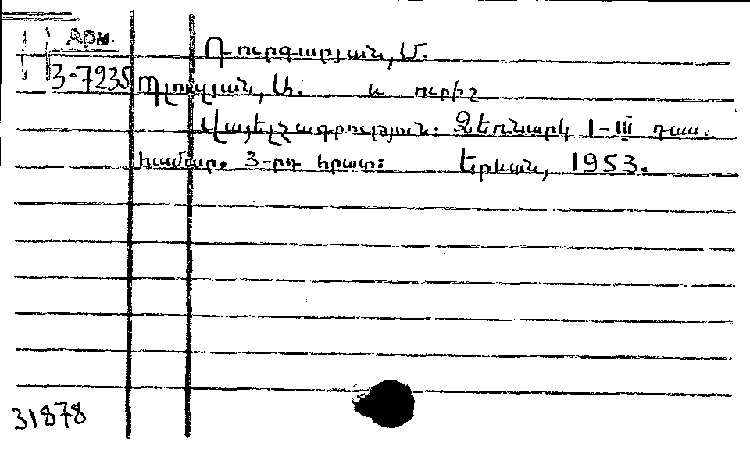 Арм.
3-7235
Դուրգարյան, Մ.
Պլուզյան, Ա. և ուրիշ
Վայելչագրություն: Ձեռնարկ I-III դաս.
համար. 3-րդ հրատ: Երևան, 1953.
31878